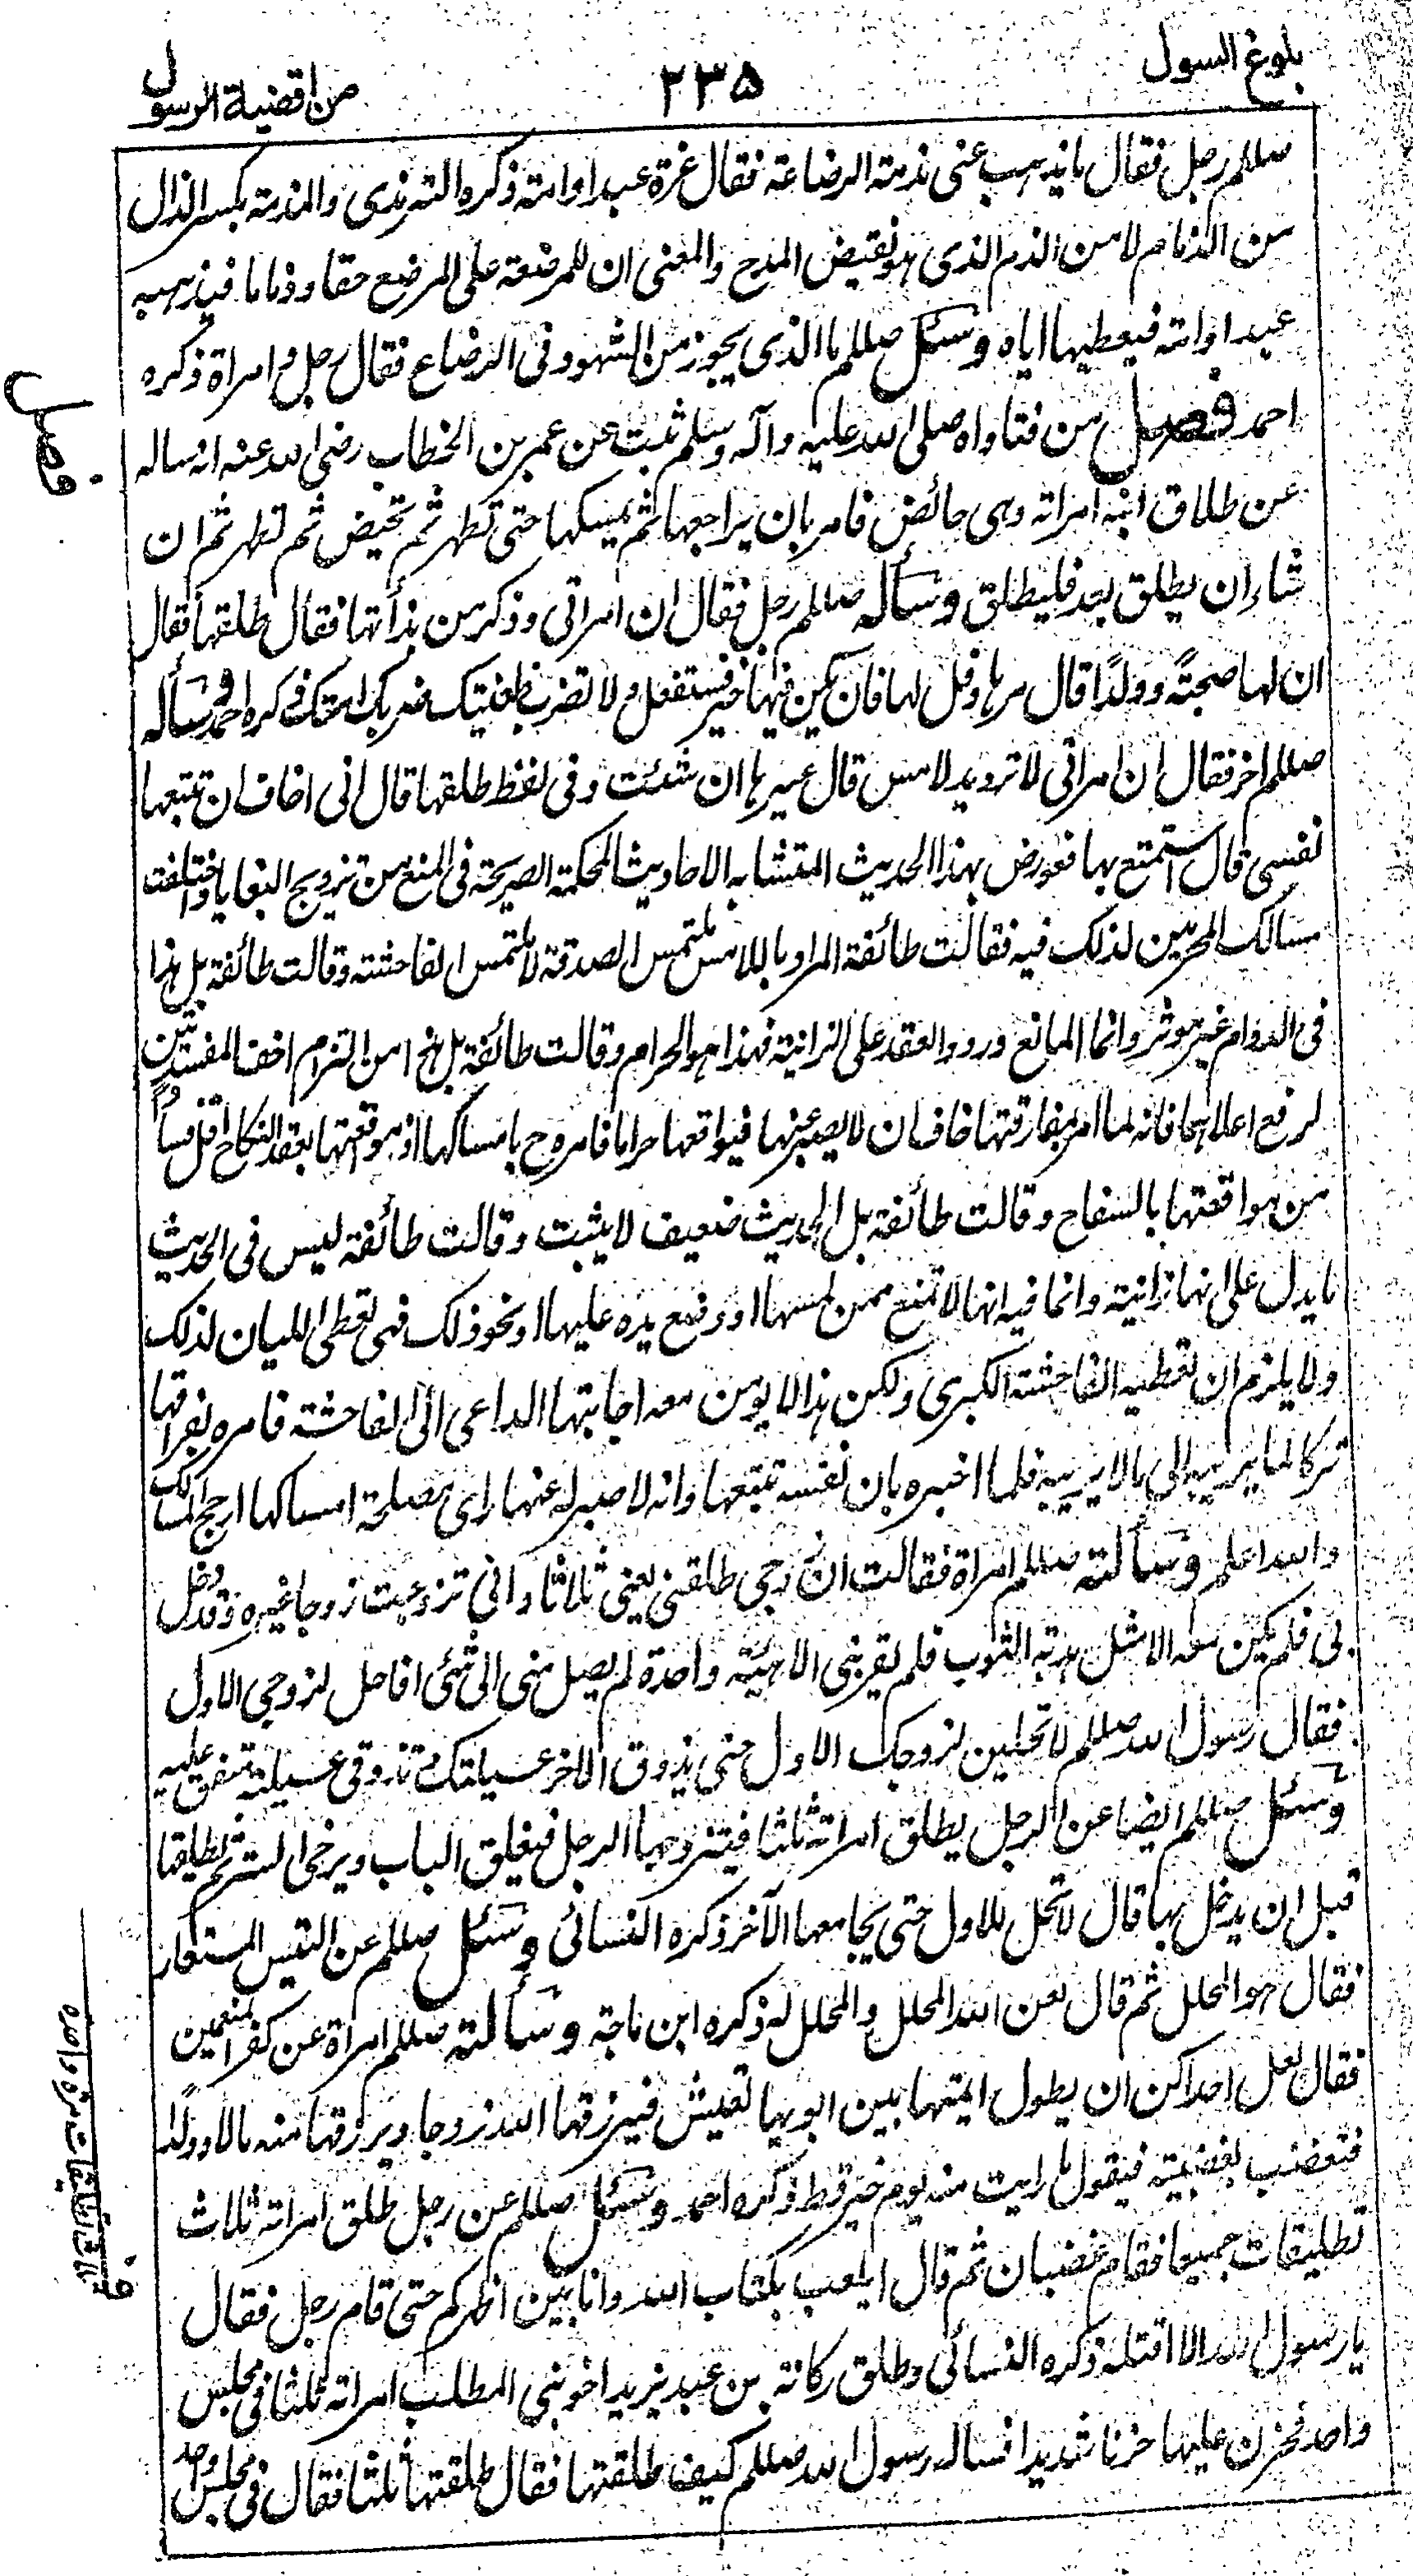 بلوغ السول
٢٣٥
من اقضية الرسول
صللم رجل فقال ما يذهب عنى مذمة الرضاعة فقال غرة عبد او امة ذكره الترمذى والمذمة بكسر الذال
من الذمام لا من الذم الذى هو نقيض المدح والمعنى ان للمرضعة على المرضع حقا وذماما فيذهبه
عبد او امة فيعطيها اياه وسئل صللم ما الذى يجوز من الشهود فى الرضاع فقال رجل وامراة ذكره
احمد فصل من فتاواه صلى الله عليه وآله وسلم ثبت عن عمر بن الخطاب رضى الله عنه انه ساله
فصل
عن طلاق ابنه امراته وهى حائض فامر بان يراجعها ثم يمسكها حتى تطهر ثم تحيض ثم تطهر ثم ان
شاء ان يطلق بعد فليطلق وسأله صللم رجل فقال ان امراتى وذكر من بذأتها فقال طلقها فقال
ان لها صحبةً وولدًا قال مرها وقل لها فان يكن فيها خير فستفعل ولا تضرب ظعينتك ضربك امتك ذكره احمد وسأله
صللم اخر فقال ان امراتى لا ترد يد لامس قال غيرها ان شئت وفى لفظ طلقها قال انى اخاف ان تتبعها
نفسى قال استمتع بها فعورض بهذا الحديث المتشابه الاحاديث المحكمة الصريحة فى المنع من تزويج البغايا واختلفت
مسالك المحرمين لذلك فيه فقالت طائفة المراد باللامس ملتمس الصدقة لا ملتمس الفاحشة وقالت طائفة بل هذا
فى الدوام غير موثر وانما المانع ورود العقد على الزانية فهذا هو الحرام وقالت طائفة بل هذا من التزام اخف المفسدتين
لرفع اعلاهما فانه لما امر بمفارقتها خاف ان لا يصبر عنها فيواقعها حراما فامره ح بامساكها اذ مواقعتها بعقد النكاح اقل فسادًا
من مواقعتها بالسفاح وقالت طائفة بل الحديث ضعيف لا يثبت وقالت طائفة ليس فى الحديث
ما يدل على انها زانية وانما فيه انها لا تمنع ممن لمسها او وضع يده عليها او نحو ذلك فهى تعطى الليان لذلك
ولا يلزم ان تعطيه الفاحشة الكبرى ولكن هذا لا يومن معه اجابتها الداعى الى الفاحشة فامره بفراقها
تركا لما يريبه الى ما لا يريبه فلما اخبره بان نفسه تتبعها وانه لا صبر له عنها راى مصلحة امساكها ارجح المسالك
والله اعلم وسألته صللم امراة فقالت ان زوجى طلقنى يعنى ثلاثا وانى تزوجت زوجا غيره وقد دخل
بى فلم يكن معه الا مثل هدبة الثوب فلم يقربنى الا هنة واحدة لم يصل منى الى شئى افاحل لزوجى الاول
فقال رسول الله صللم لا تحلين لزوجك الاول حتى يذوق الاخر عسيلتك وتذوقى عسيلته متفق عليه
وسئل صللم ايضا عن الرجل يطلق امراته ثلثا فيتزوجها الرجل فيغلق الباب ويرخى الستر ثم يطلقها
قبل ان يدخل بها قال لا تحل للاول حتى يجامعها الآخر ذكره النسائى وسئل صللم عن التيس المستعار
فقال هو المحلل ثم قال لعن الله المحلل والمحلل له ذكره ابن ماجة وسألته صللم امراة عن كفر المنعمين
فقال لعل احداكن ان يطول ايمتها بين ابويها تعيش فيرزقها الله زوجا ويرزقها منه مالا وولدًا
فتغضب الغضبة فيقول ما رايت منه يوم خير قط ذكره احمد وسئل صللم عن رجل طلق امراته ثلاث
تطليقات جميعا فقام غضبان ثم قال ايلعب بكتاب الله وانا بين اظهركم حتى قام رجل فقال
يا رسول الله الا اقتله ذكره النسائى وطلق ركانة بن عبد يزيد اخو بنى المطلب امراته ثلثا فى مجلس
واحد فحزن عليها حزنا شديدا فساله رسول الله صللم كيف طلقتها فقال طلقتها ثلثا فقال فى مجلس واحد